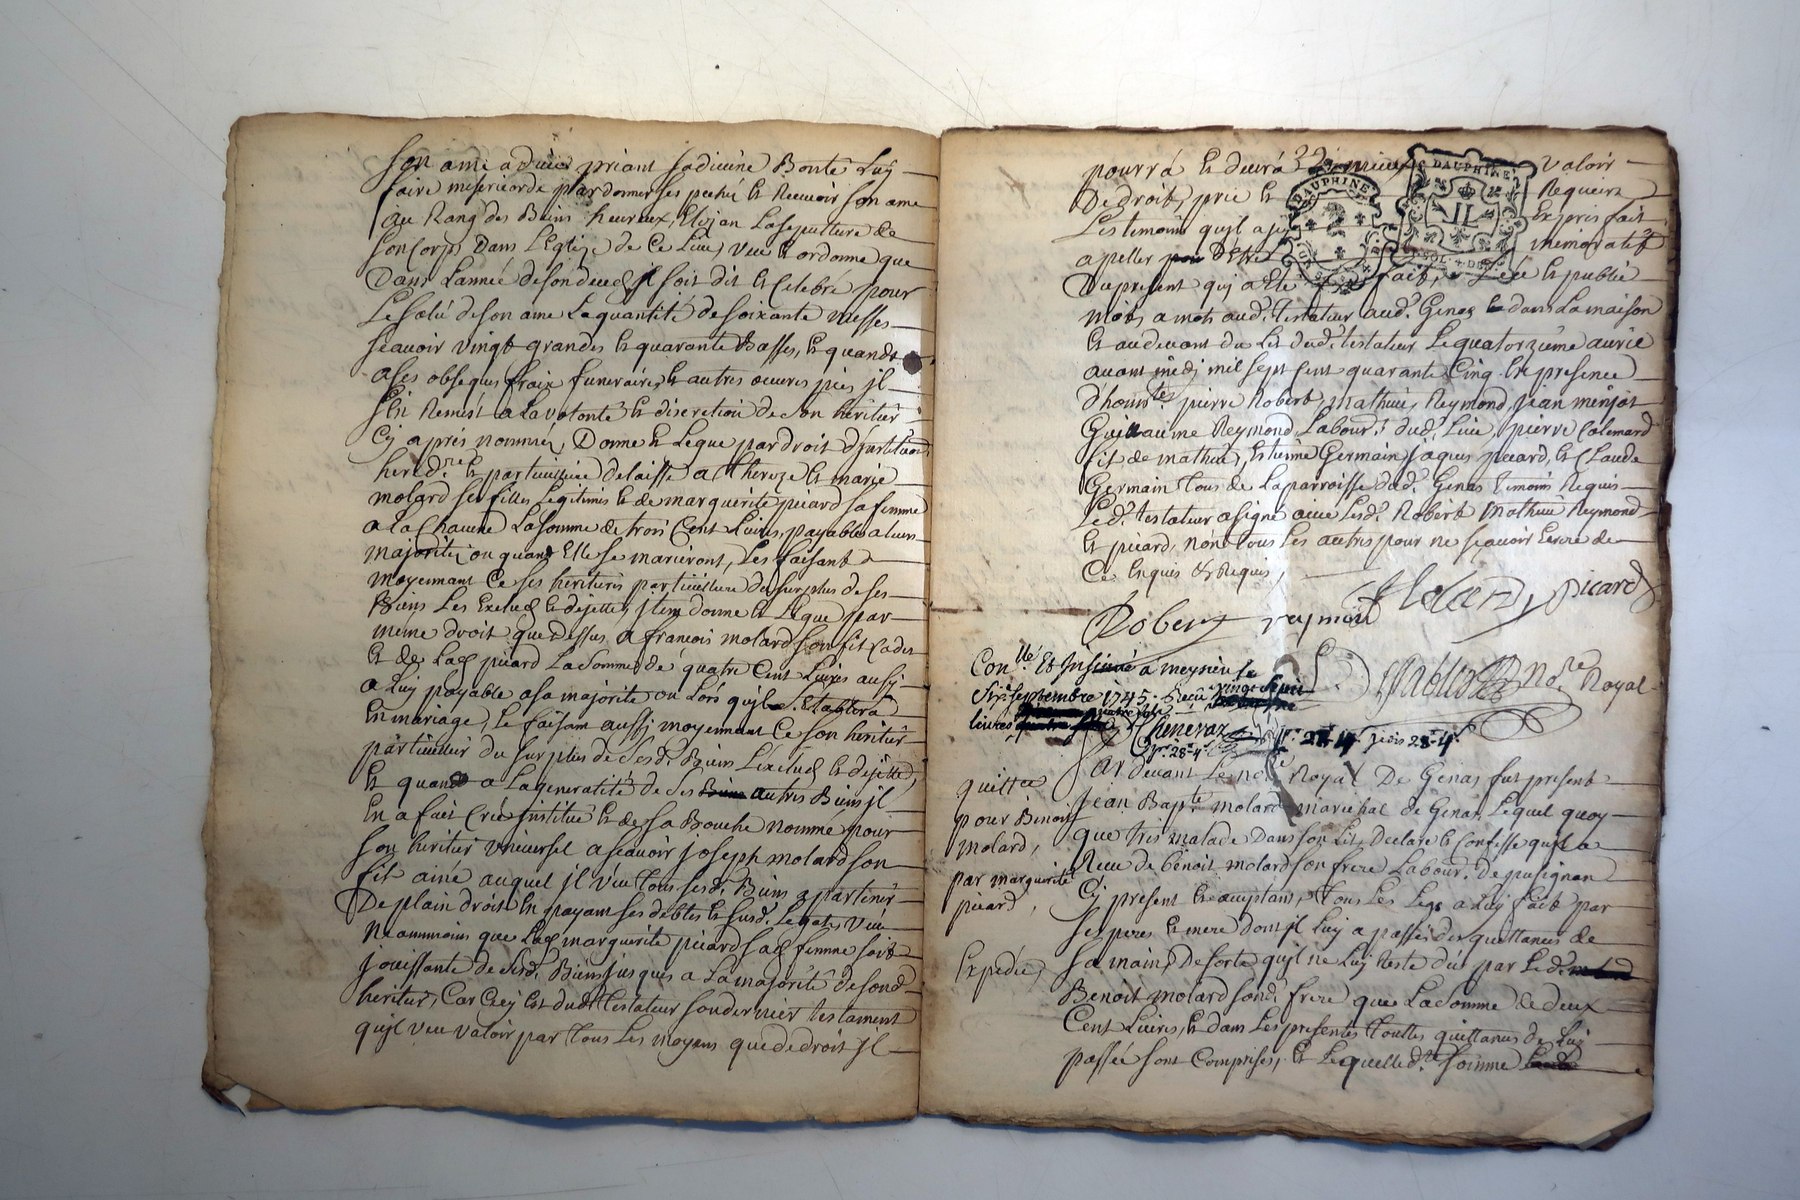 son ame a dieu priant sa divine Bonté Luy
faire misericorde pardonner ses pechés et Recevoir son ame
au Rang des Biens heureux, Elizan La sepulture de
son Corps Dans L'Eglize de Ce Lieu, veut et ordonne que
Dans L'année de son deced il soit dit et Celebré pour
Le salu de son ame La quantité de soixante messes
scavoir vingt grandes et quarante Basses, et quand
a ses obseques fraix funeraires et autres oeuvres pies il
s'En Remest a La volonté et discretion de son heritier
Cy aprés nommé, Donne et Legue par droit d'justitution
hered.re et particuliere delaisse a Thereze et marie
molard ses filles Legitimes et de marguerite picard sa femme
a La Chacune La somme de trois Cent Livres, payable a leurs
majorités ou quand Elle se marieront, Les faisant
moyennant Ce ses heritieres particuliere du surplus de ses
Biens Les Exclud et dejette, jtem donne et Legue par
meme droit que Dessus a francois molard son fil Cadet
et de Lad picard La somme de quatre Cent Livres aussy
a Luy payable a sa majorité ou Lors qu'jl s'Etablira
En mariage, Le faisant aussy moyennant Ce son heritier
particulier du surplus de Sesd. Biens L'exclud et dejette,
Et quand a La generalité de ses autres Biens jl
En a fait Créé jnstitué et de sa Bouche nommé pour
son heritier vniversel a scavoir joseph molard son
fil ainé auquel jl veut tous sesd. Biens appartenir
De plain droit En payant ses debtes et susd. Legats, veut
Neanmoins que Lad marguerite picard sad femme soit
jouissante de Sesd. Biens jusques a La majorité de sond
heritier, Car Cecy Est dud Testateur son dernier testament
qu'jl veut valoir par tous Les moyens que de droit jl
pourrá et devrá mieux valoir
De droit, prie et Requiert
Les temoins qu'jl a Expres fait
apeller D'Etre memoratifs
Du present quj a Eté fait, et publié
mots a mots aud. testateur aud. Genas dans La maison
et au devant du Lit dud. testateur Le quatorzieme avril
avant midj mil sept Cent quarante Cinq En presence
d'honn.tes pierre Robert, mathieu Reymond, jean menjot
Guillaume Reymond Labour.s dud. Lieu, pierre
fil de mathieu, Estienne Germain, jaques picard, et Claude
Germain tous de La parroisse dud. Genas temoins Requis
Led. testateur a signé avec Lesd. Robert mathieu Reymond
et picard, non tous Les autres pour ne scavoir Ecrire de
Ce Enquis et Requis,
Molard picard
Robert reymond
Con.llé Et Insinué a meyzieu le
Six septembre 1745. Receu vingt
livres
Chenevaz
not.re Royal
DAUPHINE
DAUPHINE
II
SOL
quittce
pour Benoit
molard,
par marguerite
picard,
Expedié,
Par devant Le not.re Royal De Genas fut present
jean Bap.te molard marechal de Genas, Lequel quoy
que tres malade Dans son Lit, Declare et Confesse qu'jl a
Receu de benoit molard son frere Labour. de pusignan
Cy present et acceptant, Tous Les Legs a Luy fait par
ses peres et mere dont jl Luy a passé des quittances de
sa main, De sorte qu'jl ne Luy Reste dû par Led.
Benoit molard sond. frere que La somme de deux
Cent Livres, et dans Les presentes touttes quittances de Luy
passée sont Comprises, Et Lequelle d.te somme